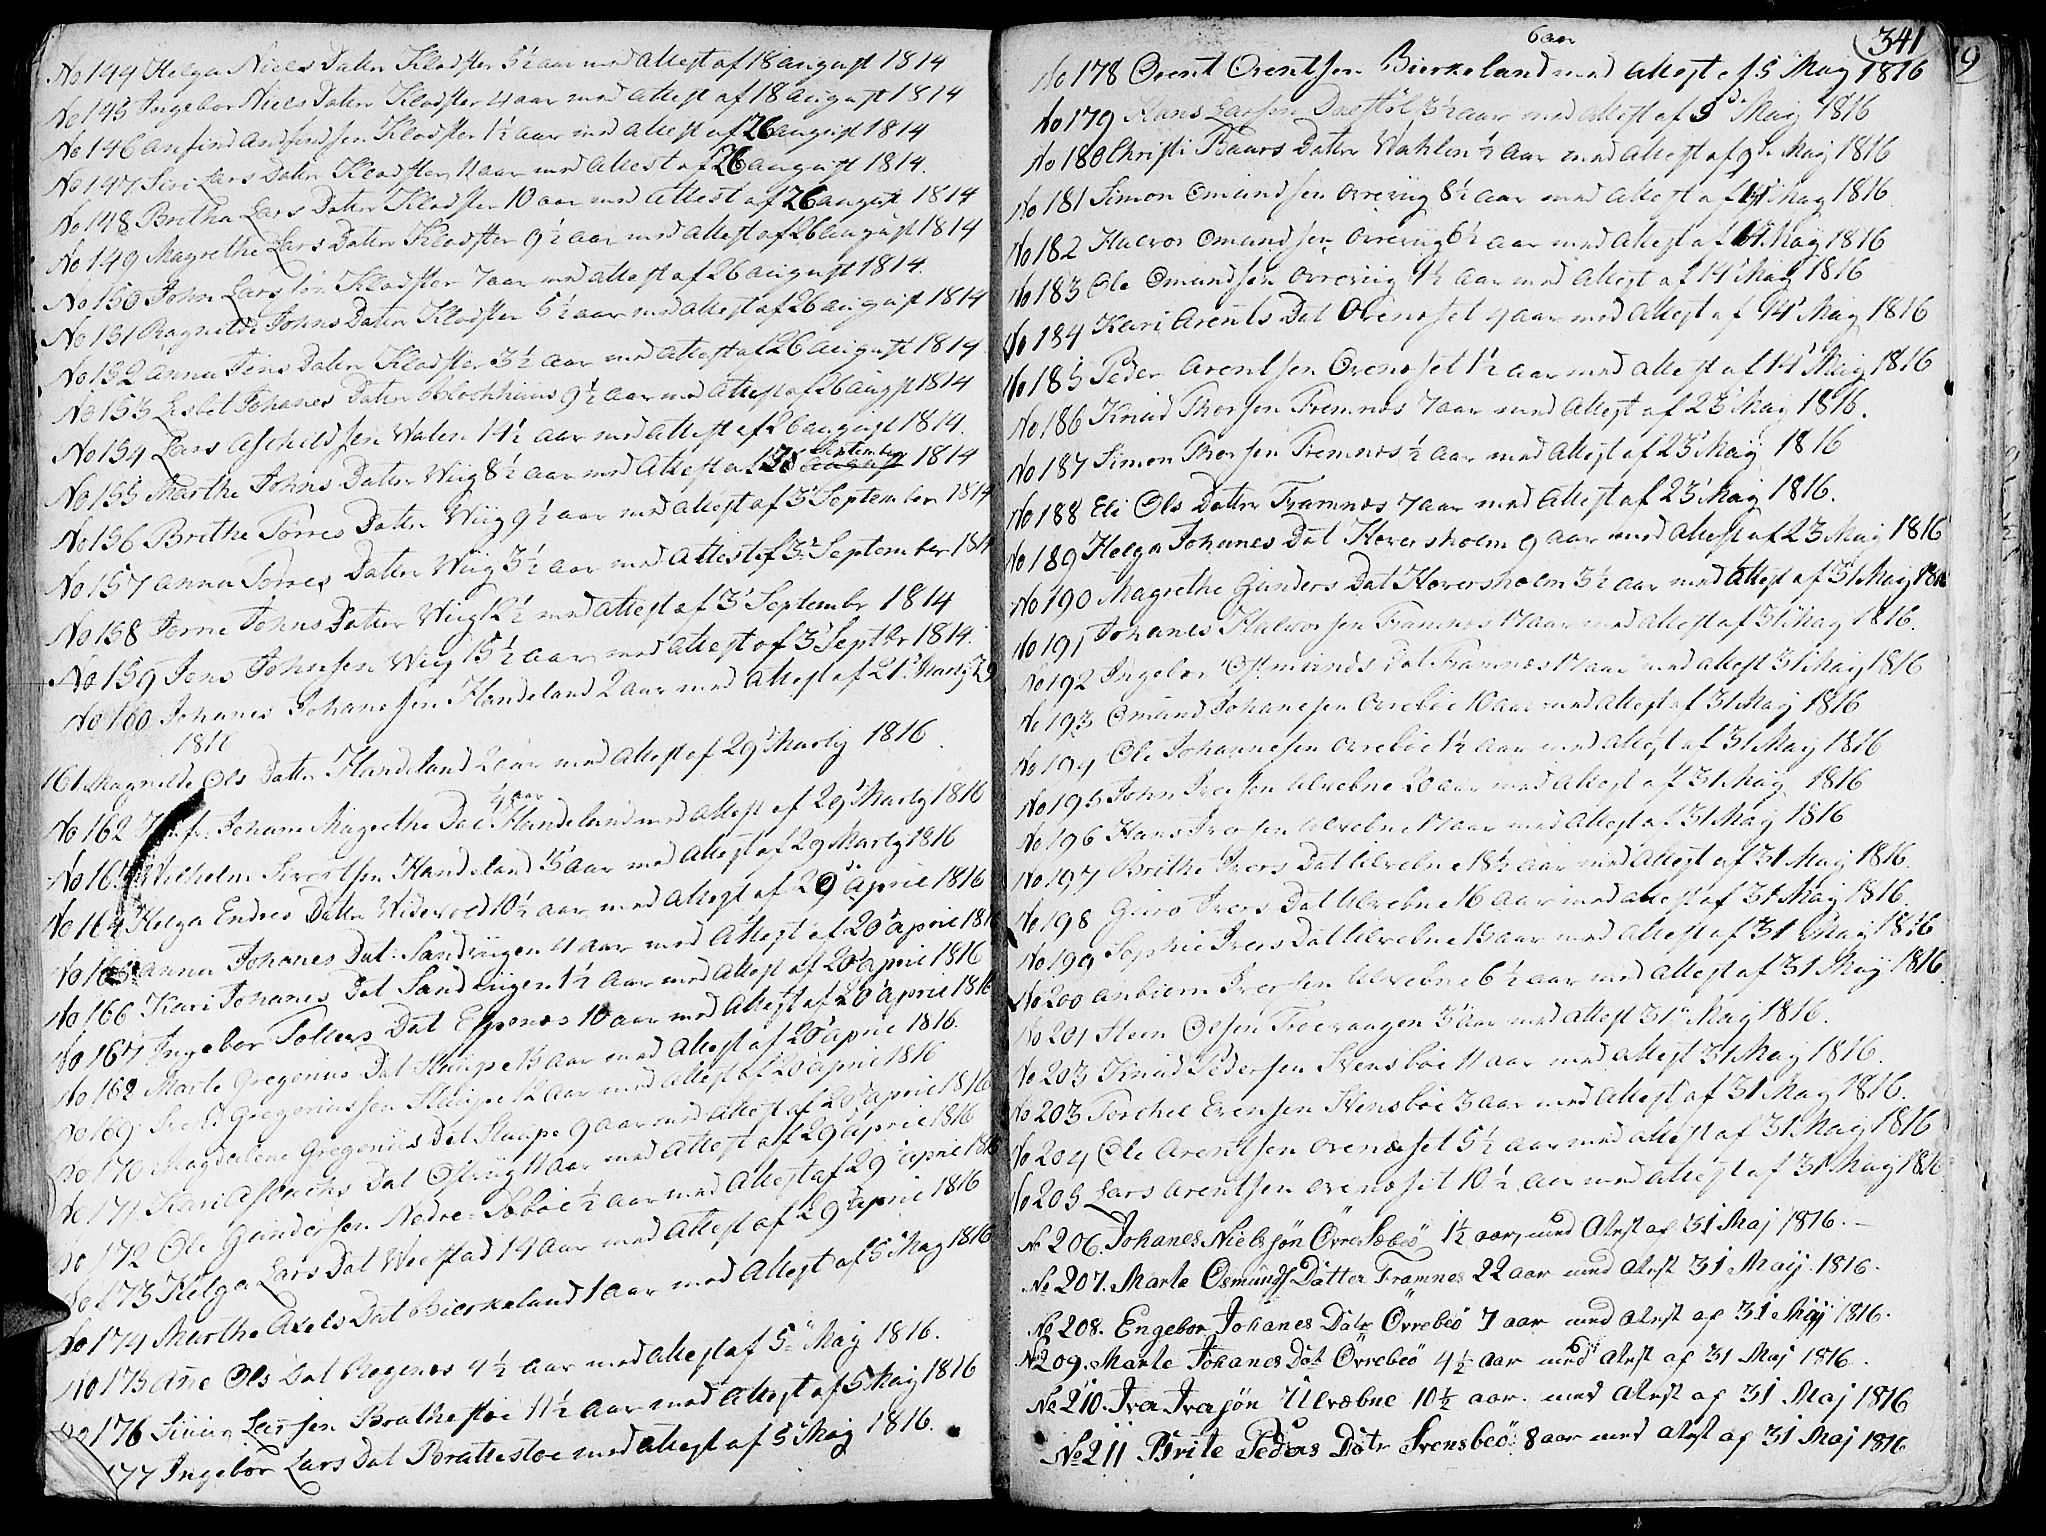 No 144 Helga Niels Datter Kladster 5½ aar med Attest af 18 august 1814
No 145 Ingebor Niels Datter Kladster 4 aar med Attest af 18 august 1814
No 146 anfind andfindsen Kladster 1½ aar med Attest af 26 august 1814
No 147 Siri Lars Datter Kladster 11 aar med Attest af 26 august 1814.
No 148 Britha Lars Datter Kladster 10 aar med Attest af 26 august 1814
No 149 Magrethe Lars Datter Kladster 9½ aar med Attest af 26 august 1814
No 150 John Lars søn Kladster 7 aar med Attest af 26 august 1814.
No 151 Ragnilde Johns Datter Kladster 5½ aar med Attest af 26 august 1814
No 152 anna Jens Datter Kladster 3½ aar med Attest af 26 august 1814
No 153 Lisbet Johanes Datter Blochhuus 9½ aar med Attest af 26 august 1814
No 154 Lars Aschildsen Walen 14½ aar med Attest af 26 august 1814.
No 155 Marthe Johns Datter Wiig 8½ aar med Attest af September 1814
No 156 Brithe Torres Datter Wiig 9½ aar med Attest af 3' September 1814
No 157 anna Torres Datter Wiig 3½ aar med Attest af 3' September 1814
No 158 Johns Datter Wiig 12½ med Attest af 3' Septembr 1814
No 159 Jens Johnsen Wiig 15½ aar med Attest af 3' Septbr 1814.
No 160 Johanes Johanesen Handeland 2 aar med Attest af 21' Martz
1816
161 Magnilde Ols Datter Handeland 2 aar med Attest af 29' Martz 1816.
½ aar
No 162 Johane Magrethe Dat Handeland med Attest af 29' Martz 1816
No 163 Wilhelm Sivertsen Handeland 3 aar med Attest af 29 Martz 1816
No 164 Helga Endres Datter Widevold 10½ aar med Attest af 20' april 1816
No 165 anna Johanes Dat: Sandvigen 4 aar med Attest af 20' april 1816
No 166 Kari Johanes Dat Sandvigen 1½ aar med Attest af 20' april 1816
No 167 Ingebor Tollevs Dat Espenes 10 aar med Attest af 20' april 1816
No 168 Marte Gregorius Dat Staupe 13 aar med Attest af 20' april 1816.
No 169 Gregoriussen Staupe 12 aar med Attest af 20' april 1816
No 170 Magdalene Gregorius Dat Staupe 9 aar med Attest af 20' april 1816
No 171 Kari Dat Ølviig 11 aar med Attest af 29' april 1816
No 172 Ole Gundersen Nedre Sæbøe ½ aar med Attest af 29' april 1816
No 173 Helga Lars Dat Westad 14 aar med Attest af 29 april 1816
No 174 Marthe Axels Dat Bierkeland 1 aar med Attest af 5' May 1816
No 175 Ane Ols Dat Ragenes 4½ aar med Attest af 5' May 1816.
No 176 Siur Larsen Brathestøe 11½ aar med Attest af 5 May 1816
177 Ingebor Lars Dat Brattestøe med Attest af 5' May 1816.
341
6 aar
No 178 Orent Orentsen Bierkeland med Attest af 5 May 1816
No 179 Hans Larsen Dalstøl 3½ aar med Attest af 9de May 1816
No 180 Christi Baars Datter Wahlen ½ aar med Attest af 9de May 1816
No 181 Simon Omundsen Ovreviig 8½ aar med Attest af 14' May 1816.
No 182 Halvor Omundsen Ovreviig 6½ aar med Attest af 14. May 1816
No 183 Ole Omundsen Ovreviig 1½ aar med Attest af 14' May 1816
No 184 Kari Arents Dat Oreneset 4 aar med Attest af 14' May 1816
No 185 Peder Arentsen Oreneset 1½ aar med Attest af 14' May 1816
No 186 Knud Thorsen Fremnes 7 aar med Attest af 23' May 1816.
No 187 Simon Thorsen Fremnes ½ aar med Attest af 23' May 1816
No 188 Eli Ols Datter Framnes 7 aar med Attest af 23' May 1816.
No 189 Helga Johanes Dat Hoversholm 9 aar med Attest af 23 May 1816
No 190 Magrethe Gunders Dat Hoversholm 3½ aar med Attest af 31 May 1816
No 191 Johanes Halvorsen Framnes 17 aar med Attest af 31' May 1816.
No 192 Ingebor Osmunds Dat Framnes 17 aar med Attest 31 May 1816
No 193 Omund Johanesen Ovrebøe 10 aar med Attest af 31 May 1816
No 194 Ole Johannesen Ovrebøe 1½ aar med Attest af 31 May 1816
No 195 John Iversen Ulvebne 20 aar med Attest af 31 May 1816
No 196 Hans Iversen Ulvebne 17 aar med Attest af 31 May 1816
No 197 Brithe Ivers Dat Ulvebne 18½ aar med Attest af 31 May 1816.
No 198 Guro Ivers Dat Ulvebne 16 aar med Attest af 31 May 1816.
No 199 Sophie Ivers Dat Ulvebne 13 aar med Attest af 31 May 1816
No 200 Anbiorn Iversen Ulvebne 6½ aar med Attest af 31 May 1816.
No 201 Steen Olsen 3 aar med Attest 31' May 1816.
No 203 Knud Pedersen Svensbøe 11 aar med Attest 31 May 1816.
No 203 Torchel Evensen Svensbøe 3 aar med Attest af 31 May 1816.
No 204 Ole Arentsen Oreneset 5½ aar med Attest af 31 May 1816
No 205 Lars Arentsen Oreneset 10½ aar med Attest af 31 May 1816
No 206. Johanes Nielssøn Øvre Sæbeö 1½ aar, med Atest af 31 Maj 1816.
No 207. Marte Osmunds Datter Framnes 22 aar med Atest 31 Maij 1816.
No 208. Engebor Johanes Datr Övrebeö 7 aar med Atest af 31 Maij 1816.
No 209. Marte Johanes Dat Övrebeö 4½ aar med Atest af 31 Maj 1816.
No 210. Iver Iversön Ulvæbne 10½ aar. med Atest af 31 Maj 1816
No 211 Birite Peders Datr Svensbeö: 8 aar med Atest af 31 Maj 1816